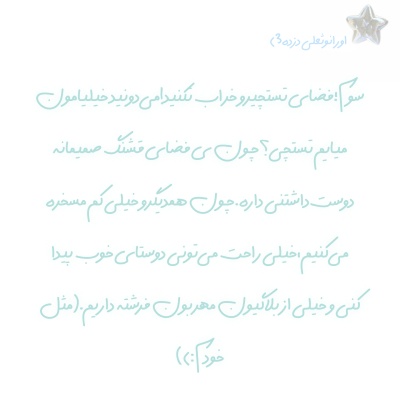 اورانوئعلی دزده3)
سوم!فضای تستچیرو خراب نکنید!می دونید خیلیامون
میایم تستچی؟ چون یی فضای قشنگ صمیمانه
دوست داشتنی داره.چون همدیگرو خیلی کم مسخره
می کنیم،خیلی راحت می تونی دوستای خوب پیدا
کنی و خیلی از بلاگیون مهربون فرشته داریم.(مثل
خودم:))